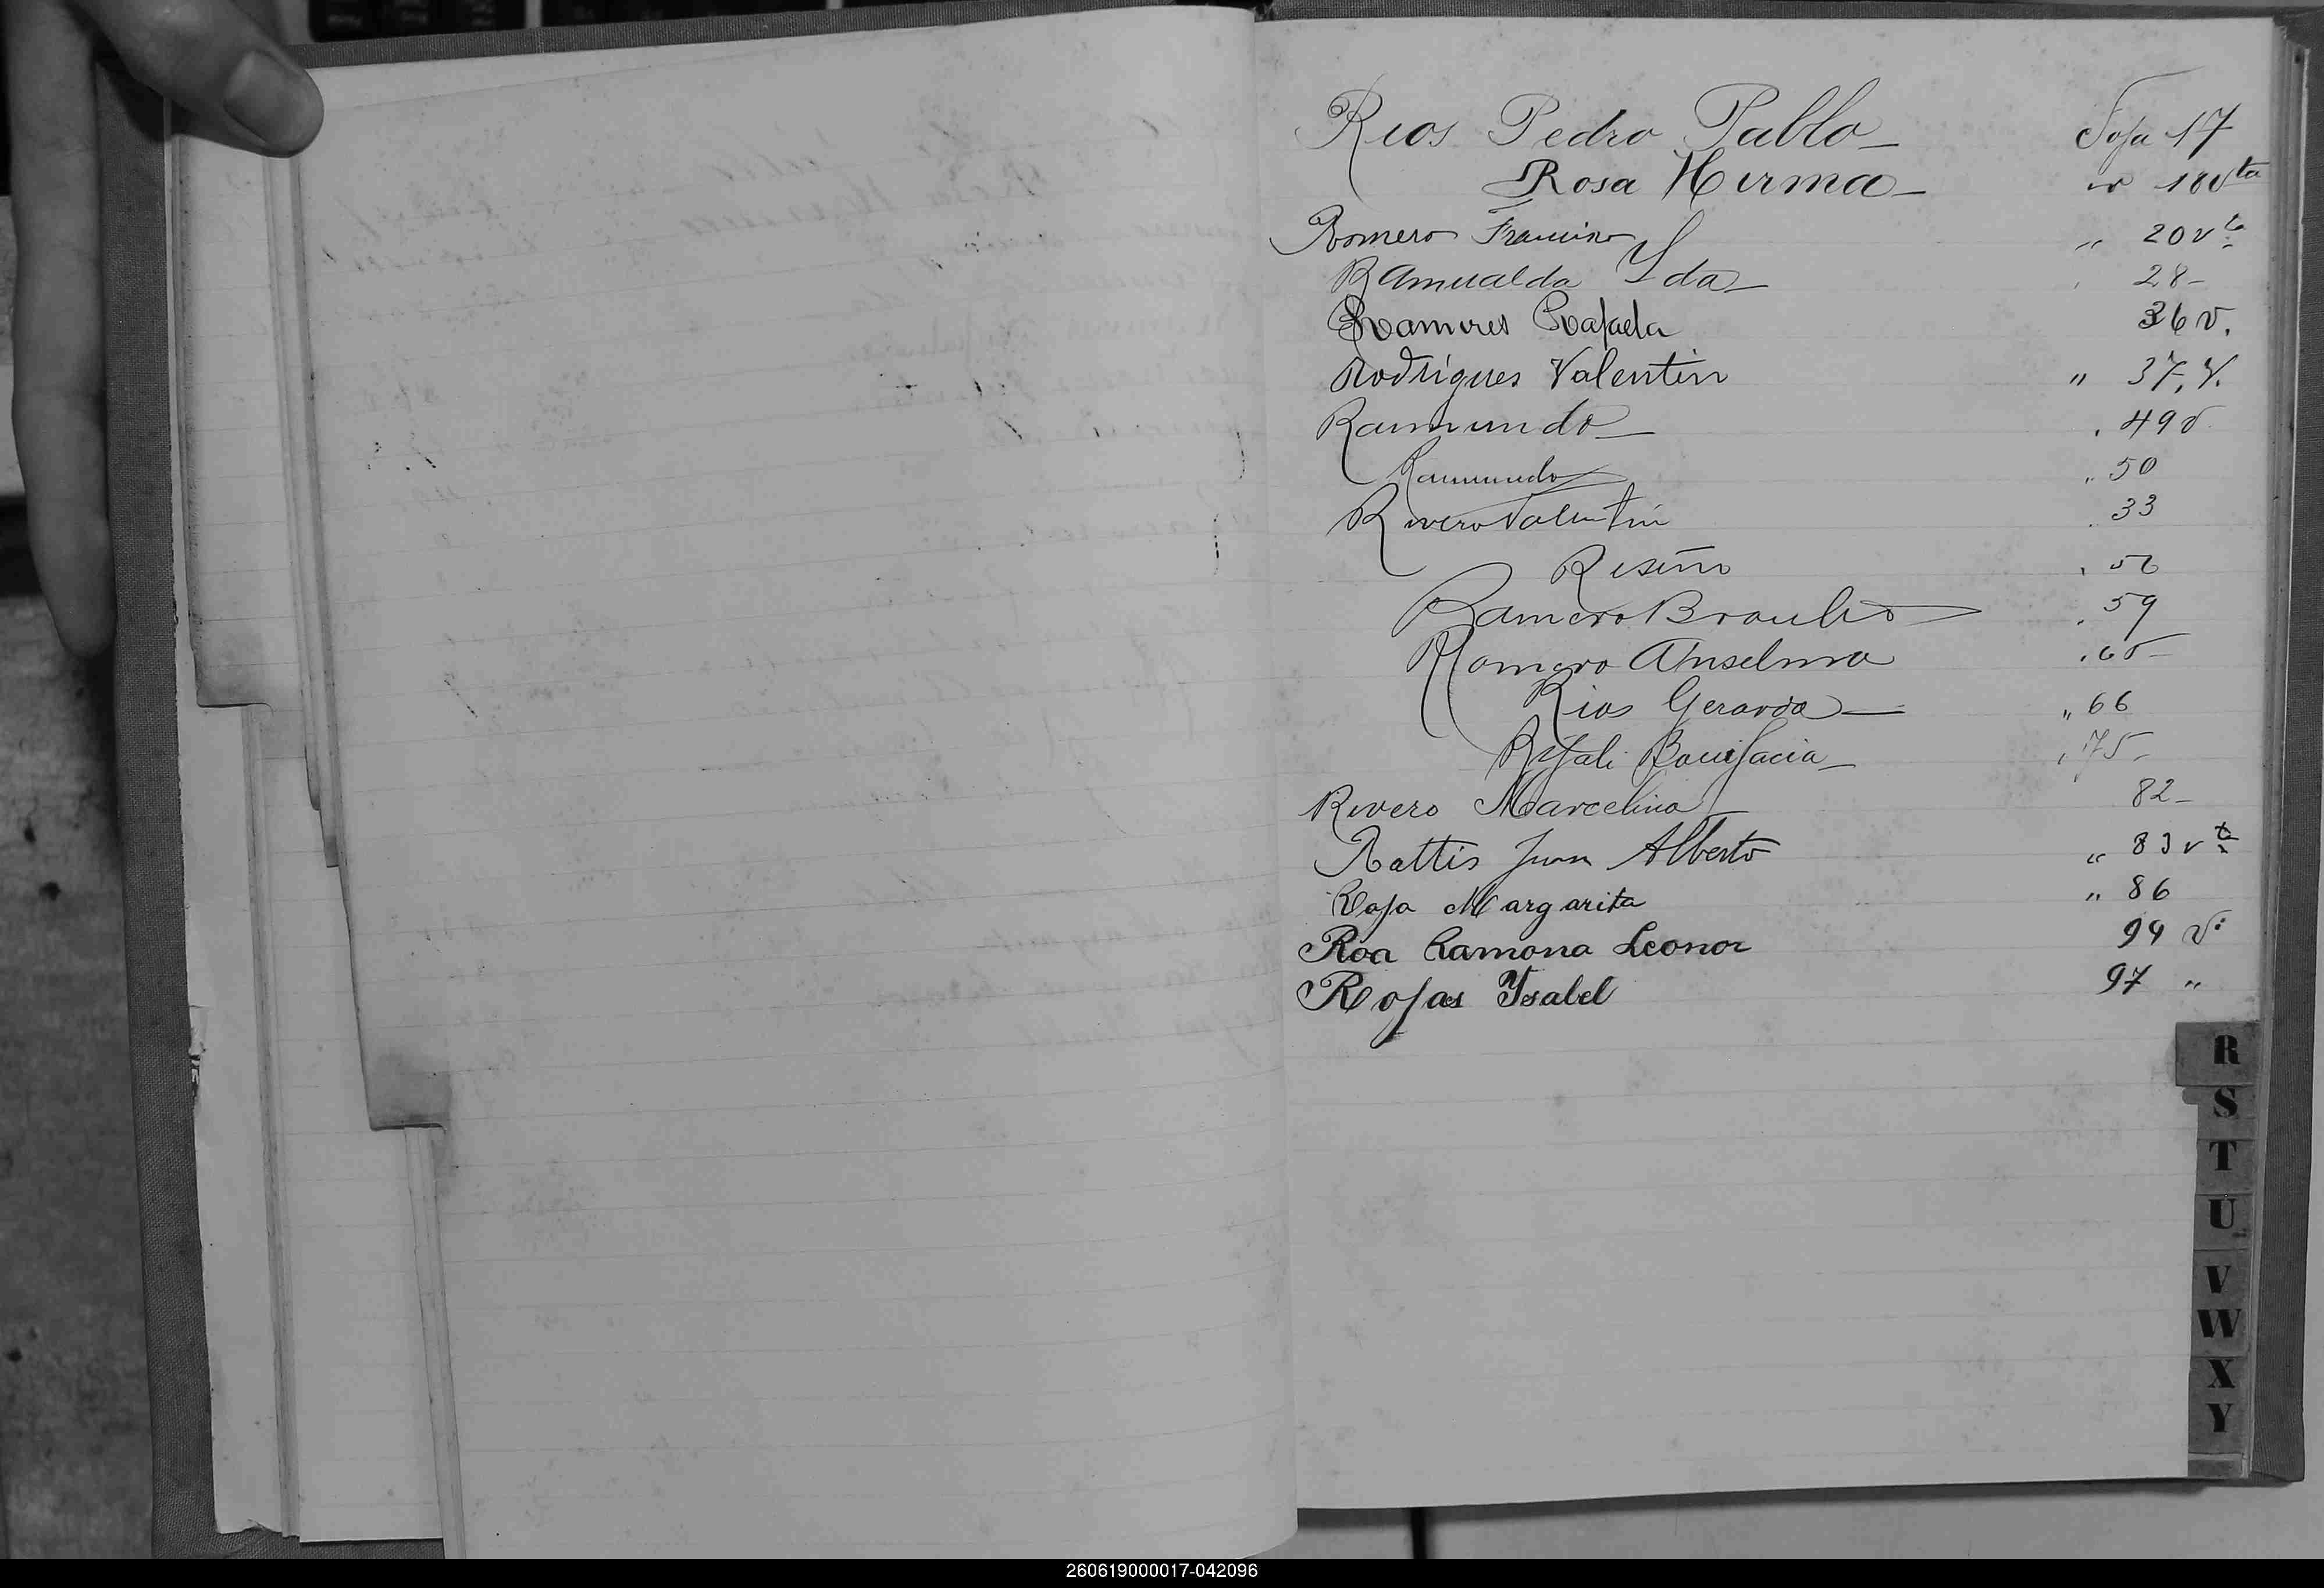 Rios Pedro Pablo Foja 17
Rosa Hirma " 18 vta
Romero Francisco " 20 vta
Ramualda Yda 28
Ramires Rafaela 36 v.
Rodrigues Valentin " 37, v.
Raimundo . 49 v
Raimundo " 50
Rivero Valentin 33
Romero Braulio . 59
Romero Anselma . 65
Rios Gerarda " 66
Bonifacia . 75
Rivero Marcelina 82
Rattis Juan Alberto " 83 vta
Roja Margarita " 86
Roa Ramona Leonor 94 v.
Rojas Ysabel 97 "
R
S
T
U
V
W
X
Y
260619000017-042096